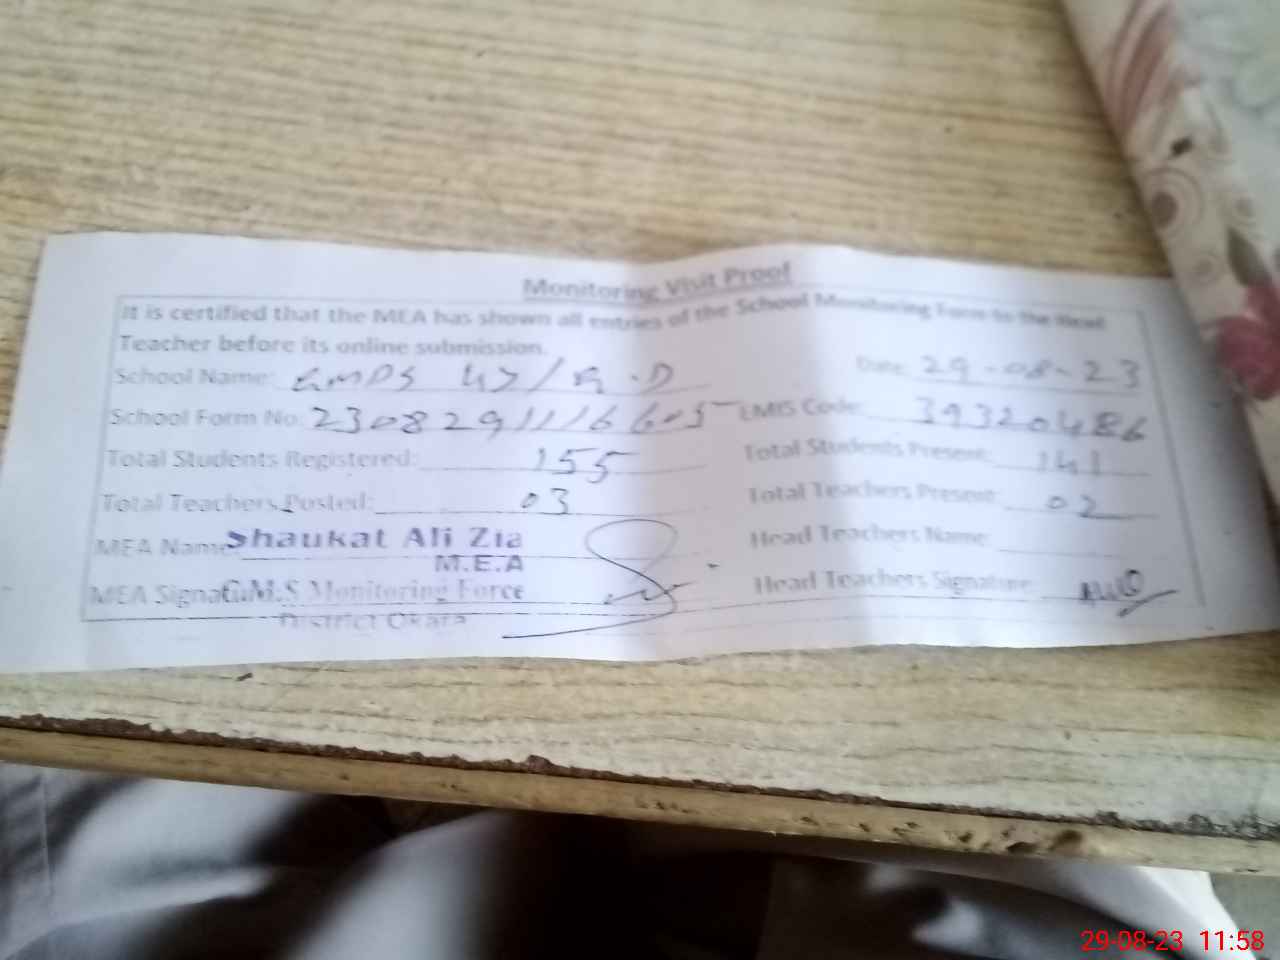 Monitoring Visit Proof
It is certified that the MEA has shown all entries of the School Monitoring Form to the Head
Teacher before its online submission.
School Name: GMPS 47/G.D Date: 29-08-23
School Form No: 23082911116605 EMIS Code: 39320486
Total Students Registered: 155 Total Students Present: 141
Total Teachers Posted: 03 Total Teachers Present: 02
MEA Name Shaukat Ali Zia Head Teachers Name:
M.E.A
MEA Signatu C.M.S Monitoring Force Head Teachers Signature:
District Okara
29-08-23 11:58